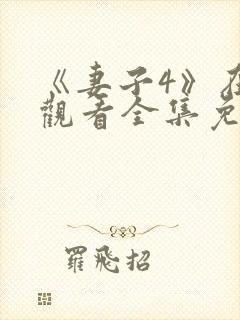 《妻子4》在
觀看全集免
羅飛招